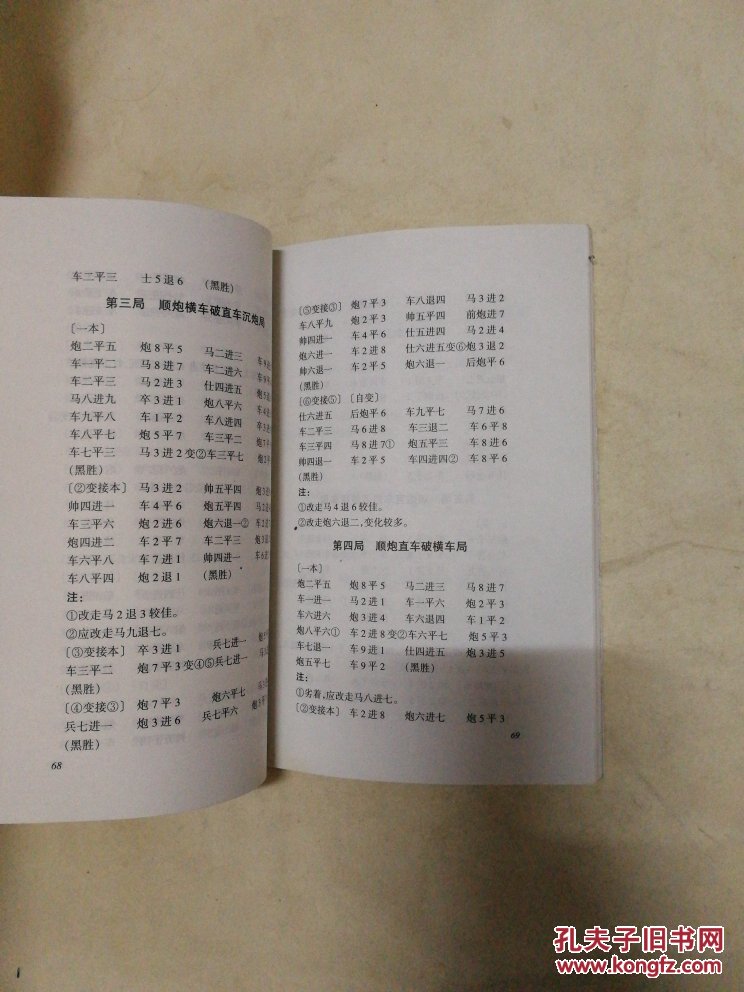 车二平三 士5退6 (黑胜)
第三局 顺炮横车破直车沉炮局
〔一本〕
炮二平五 炮8平5 马二进三 车9进
车一平二 马8进7 车二进六
车二平三 马2进3 仕四进五
马八进九 卒3进1 炮八平六
车九平八 车1平2 车八进四 卒3进
车八平七 炮5平7 车三平二
车七平三 马3进2变②车三平七 炮2
(黑胜)
〔②变接本〕 马3进2 帅五平四 炮3进
帅四进一 车4平6 炮五平四
车三平六 炮2进6 炮六退一② 车2进
炮四进二 车2平7 车三进二 车2进
车六平八 车7进1 帅四进一 车6进
车八平四 炮2退1 (黑胜)
注:
①改走马2退3较佳。
②应改走马九退七。
〔③变接本〕 卒3进1 兵七进一
车三平二 炮7平3变④⑤兵七进一
(黑胜)
〔④变接③〕 炮7平3 炮六平七
兵七进一 炮3进6 兵七平六
(黑胜)
68
〔⑤变接③〕 炮7平3 车八退四 马3进2
车八平九 炮2平3 帅五平四 前炮进7
帅四进一 车4平6 仕五进四 马2进4
炮六进一 车2进8 仕六进五变⑥炮3退2
帅六退一 车2平5 炮六退一 后炮平6
(黑胜)
〔⑥变接⑤〕〔自变〕
仕六进五 后炮平6 车九平七 马7进6
车二平三 马6进8 车三退二 车6平8
车三平四 马8进7① 炮五平三 车8进6
帅四退一 车2平5 车四进四② 车8平6
(黑胜)
注:
①改走马4退6较佳。
②改走炮六退二,变化较多。
第四局 顺炮直车破横车局
〔一本〕
炮二平五 炮8平5 马二进三 马8进7
车一进一 马2进1 车一平六 炮2平3
车六进六 炮3进4 车六退四 车1平2
炮八平六① 车2进8变②车六平七 炮5平3
车七退一 车9进1 仕四进五 炮3进5
炮五平七 车9平2 (黑胜)
注:
①劣着,应改走马八进七。
〔②变接本〕 车2进8 炮六进七 炮5平3
69
孔夫子旧书网
www.kongfz.com